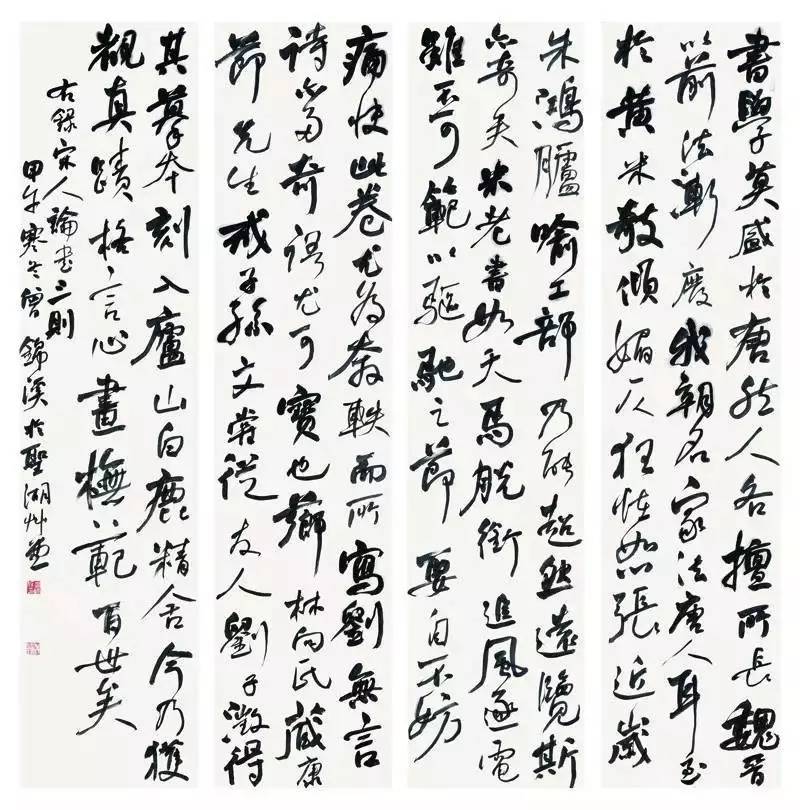 書學莫盛於唐然人各擅所長魏晉
以前法漸廢我朝名家法唐人耳至
於黃米欹傾媚仄狂怪怒張近歲
朱鴻臚喻工部乃能超然遠覽斯
亦奇矣米老書如天馬脫銜追風逐電
雖不可範以驅馳之節要自不妨
痛快此卷尤為奔軼而所寫劉無言
詩亦多奇語尤可寶也薌林向氏藏康
節先生戒子孫文嘗從友人劉子澂得
其摹本刻入廬山白鹿精舍今乃獲
觀真蹟格言心畫橅範百世矣
右錄宋人論書三則
甲午寒冬曾錦溪於聖湖艸堂